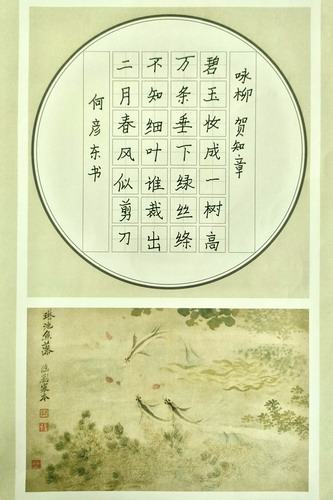 咏柳 贺知章
碧玉妆成一树高
万条垂下绿丝绦
不知细叶谁裁出
二月春风似剪刀
何彦东书
琳池魚藻
臨劉寀本